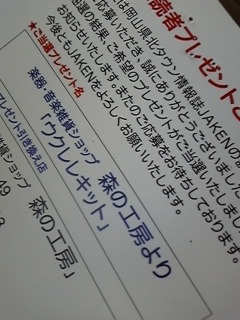 読者プレゼントと
は岡山県北タウン情報誌JAKENの
応募いただき、誠にありがとうございました。
選の結果、ご希望のプレゼントがご当選いたしました
お知らせいたします。またのご応募をお待ちしております。
今後ともJAKENをよろしくお願いいたします。
★ご当選プレゼント名
楽器・音楽雑貨ショップ 森の工房より
「ウクレレキット」
プレゼント引き換え店
雑貨ショップ 森の工房」
49